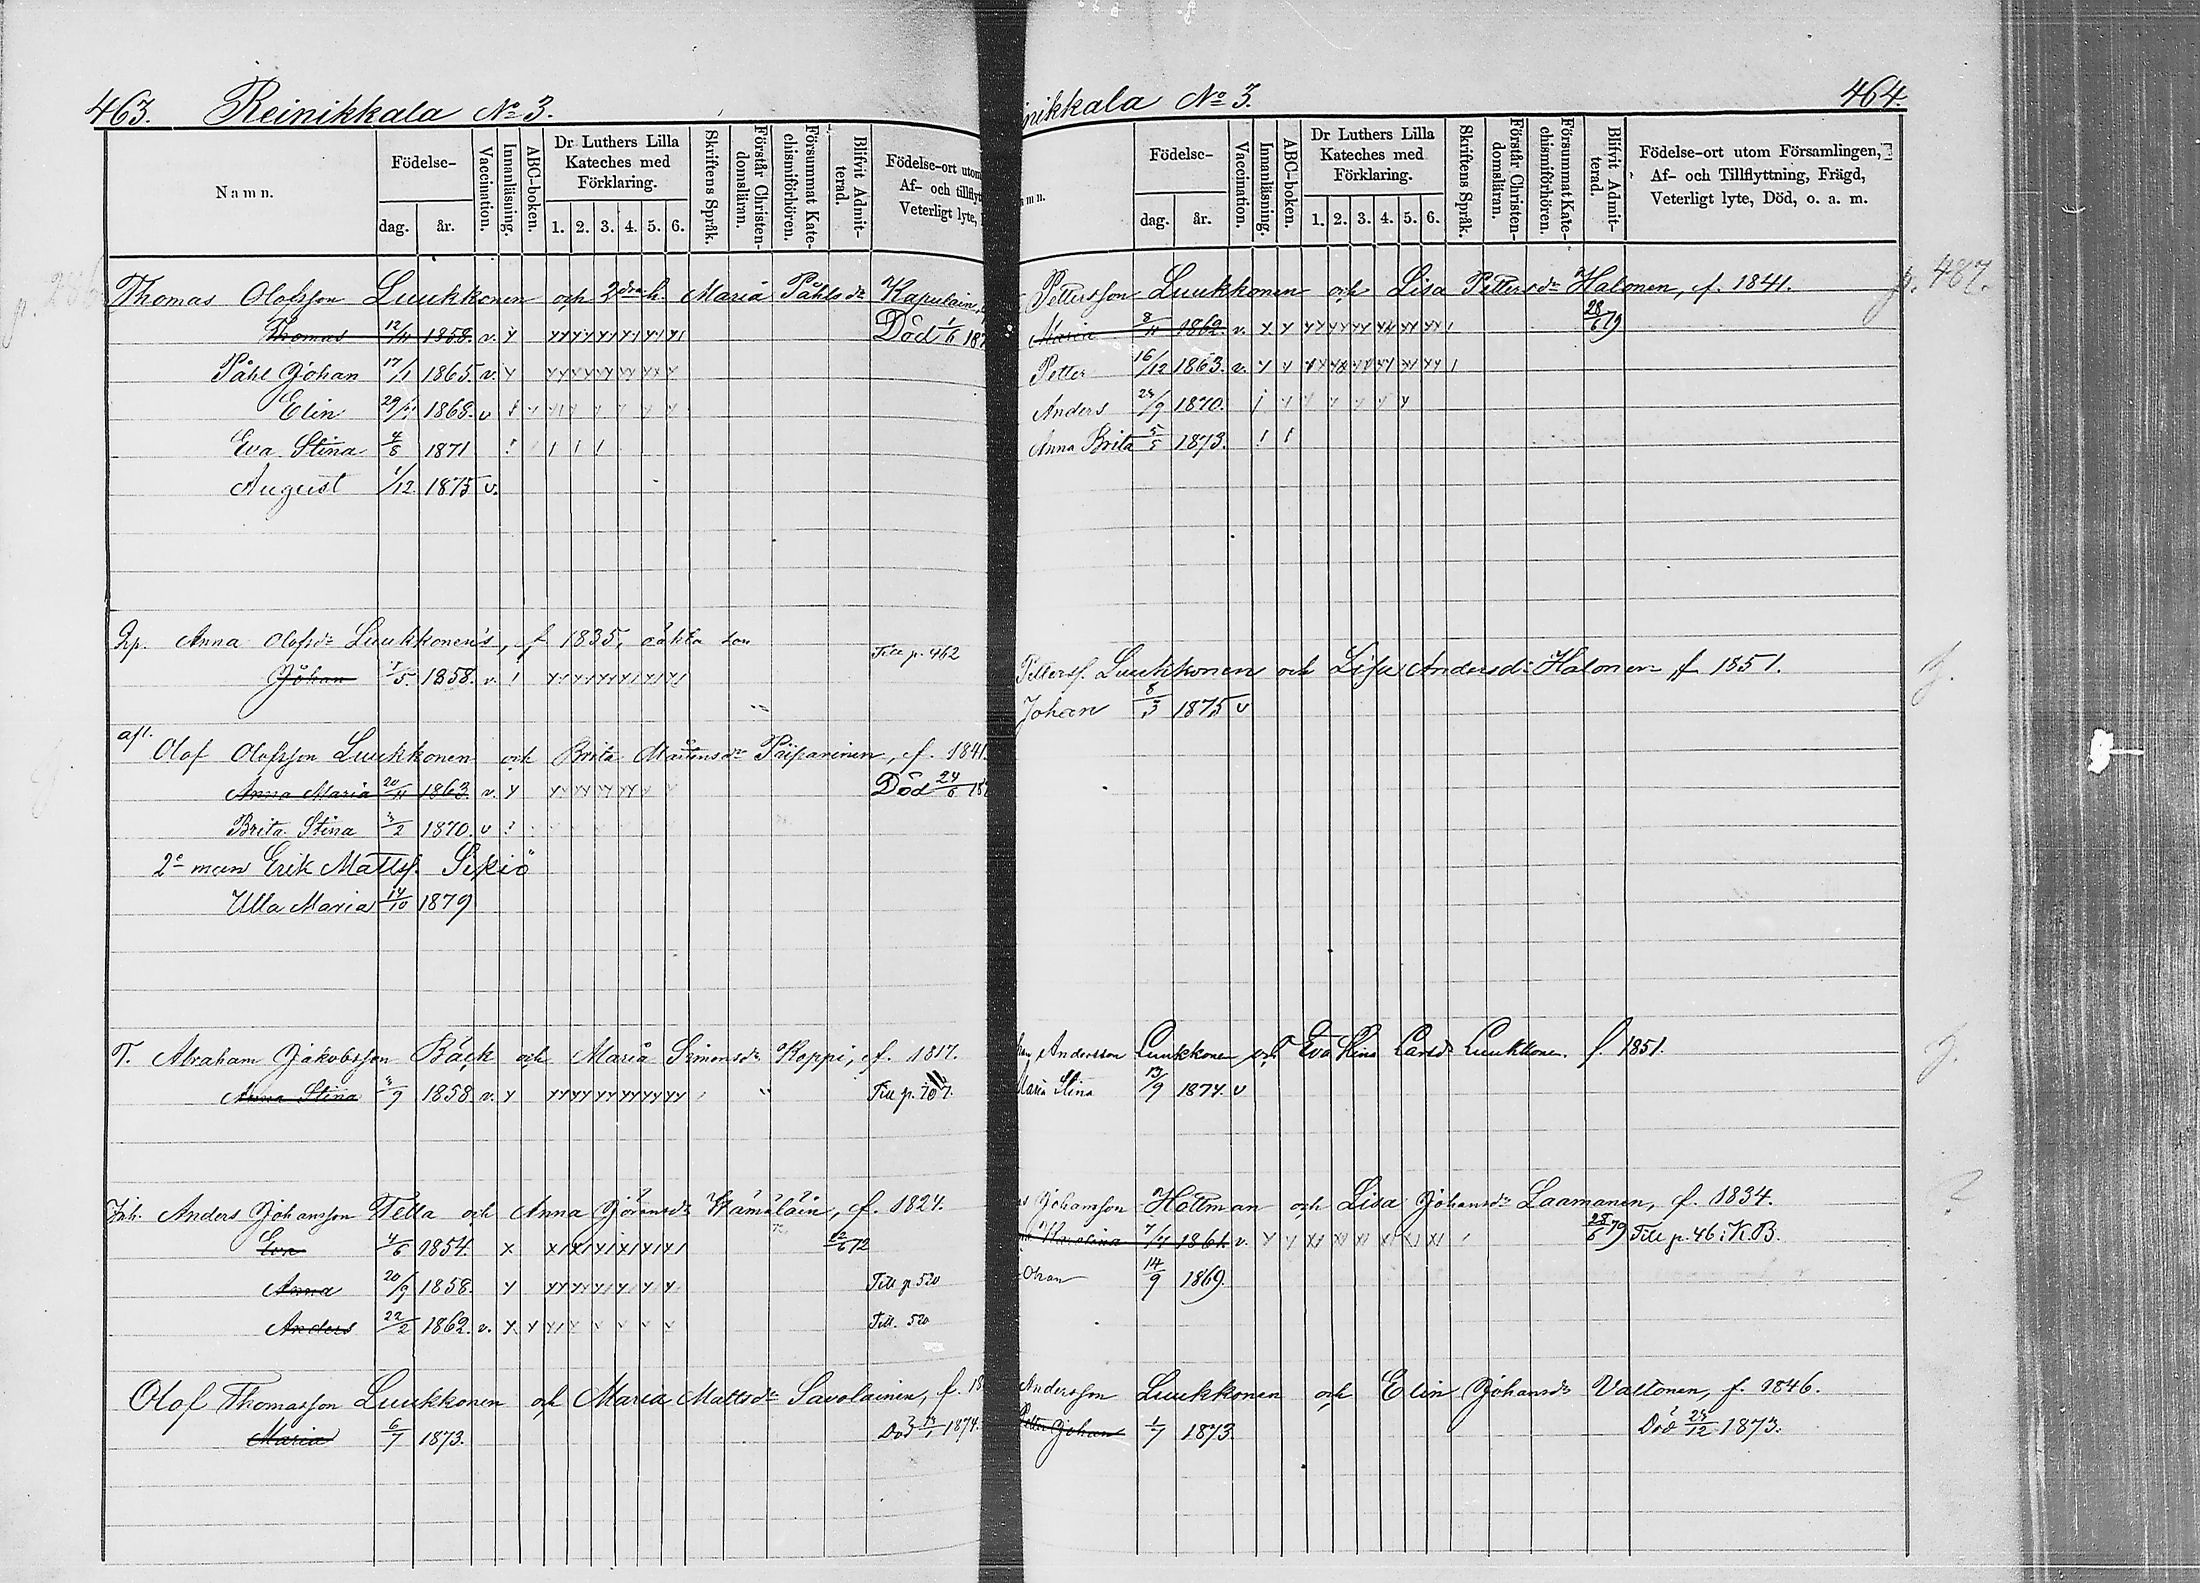 463. Reinikkala No 3.
Namn. Födelse- dag. år. Vaccination. Innanläsning. ABC-boken. Dr Luthers Lilla Kateches med Förklaring. 1. 2. 3. 4. 5. 6. Skriftens Språk. Förstår Christendomsläran. Försummat Katechismiförhören. Blifvit Admitterad. Födelse-ort utom Af- och tillflyt Veterligt lyte,
Thomas Olofsson Luukkonen och 2dra h. Maria Påhlsdr Kapulain
Thomas 12/11 1858. v. Död 1/6 187
Påhl Johan 17/1 1865. v.
Elin 1868. v
Eva Stina 4/8 1871
August 1/12 1875 v.
Anna Olofsdr Luukkonen's, f 1835, oäkta son
Johan 1/5. 1858. v. Till p. 462
afl. Olof Olofsson Luukkonen och Brita Mårtensdr Piiparinen, f. 1841.
Anna Maria 20/11 1863. v. Död 24/6
Brita Stina 3/2 1870. v
2e man Erik Mattss. Sikiö
Ulla Maria 14/10 1879
T. Abraham Jakobsson Bäck och Maria Simonsdr Koppi, f. 1817.
Anna Stina 3/9 1858 v. Till p. 707.
Inh. Anders Johansson Tella och Anna Jöransdr Hämäläin, f. 1824.
Eva 4/6 1854. 72
Anna 20/9 1858. Till p 520
Anders 22/2 1862. v. Till. 520
Olof Thomasson Luukkonen och Maria Mattsdr Savolainen, f. 18
Maria 6/7 1873. Död 1874.
nikkala No 3. 464.
mn. Födelse- dag. år. Vaccination. Innanläsning. ABC-boken. Dr Luthers Lilla Kateches med Förklaring. 1. 2. 3. 4. 5. 6. Skriftens Språk. Förstår Christendomsläran. Försummat Katechismiförhören. Blifvit Admitterad. Födelse-ort utom Församlingen, Af- och Tillflyttning, Frägd, Veterligt lyte, Död, o. a. m.
Pettersson Luukkonen och Lisa Pettersdr Halonen, f. 1841. p. 487.
Maria 8/11 1862. v. 28/6 79
Petter 16/12 1863. v.
Anders 24/9 1870.
Anna Brita 5/5 1873.
Petterss. Luukkonen och Lisa Andersdr Halonen f 1851.
Johan 8/3 1875 v
Andersson Luukkonen och Eva Stina Larsdr Luukkonen f. 1851.
Maria Stina 13/9 1874. v
Johansson Hottman och Lisa Johansdr Laamanen, f. 1834.
Karolina 7/4 1861. v. 28/6 79 Till p. 46 i K.B.
ohan 14/9 1869.
Andersson Luukkonen och Elin Johansdr Valtonen, f. 1846.
Petter Johan 1/7 1873. Död 1873.